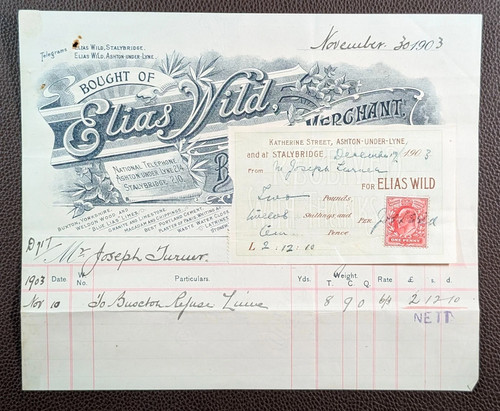 Telegrams
ELIAS WILD, STALYBRIDGE.
ELIAS WILD, ASHTON-UNDER-LYNE.
November 30 1903
BOUGHT OF
Elias Wild,
MERCHANT.
NATIONAL TELEPHONE
ASHTON-UNDER-LYNE
STALYBRIDGE
BUXTON, YORKSHIRE,
WELDON WOOD AND
BLUE LIAS LIMES
GRANITE AND LIMESTONE
KATHERINE STREET, ASHTON-UNDER-LYNE,
and at STALYBRIDGE, December 1903
From Mr Joseph Turner
FOR ELIAS WILD
Two Pounds,
Twelve Shillings and Per
Ten Pence
£ 2 . 12 . 10
POSTAGE REVENUE
ONE PENNY
Mr Joseph Turner
1903 Date No. Particulars. Yds. Weight. Rate £ s. d.
T. C. Q.
Nov 10 To Buxton Refuse Lime 8 9 0 6/4 2 12 10
NETT